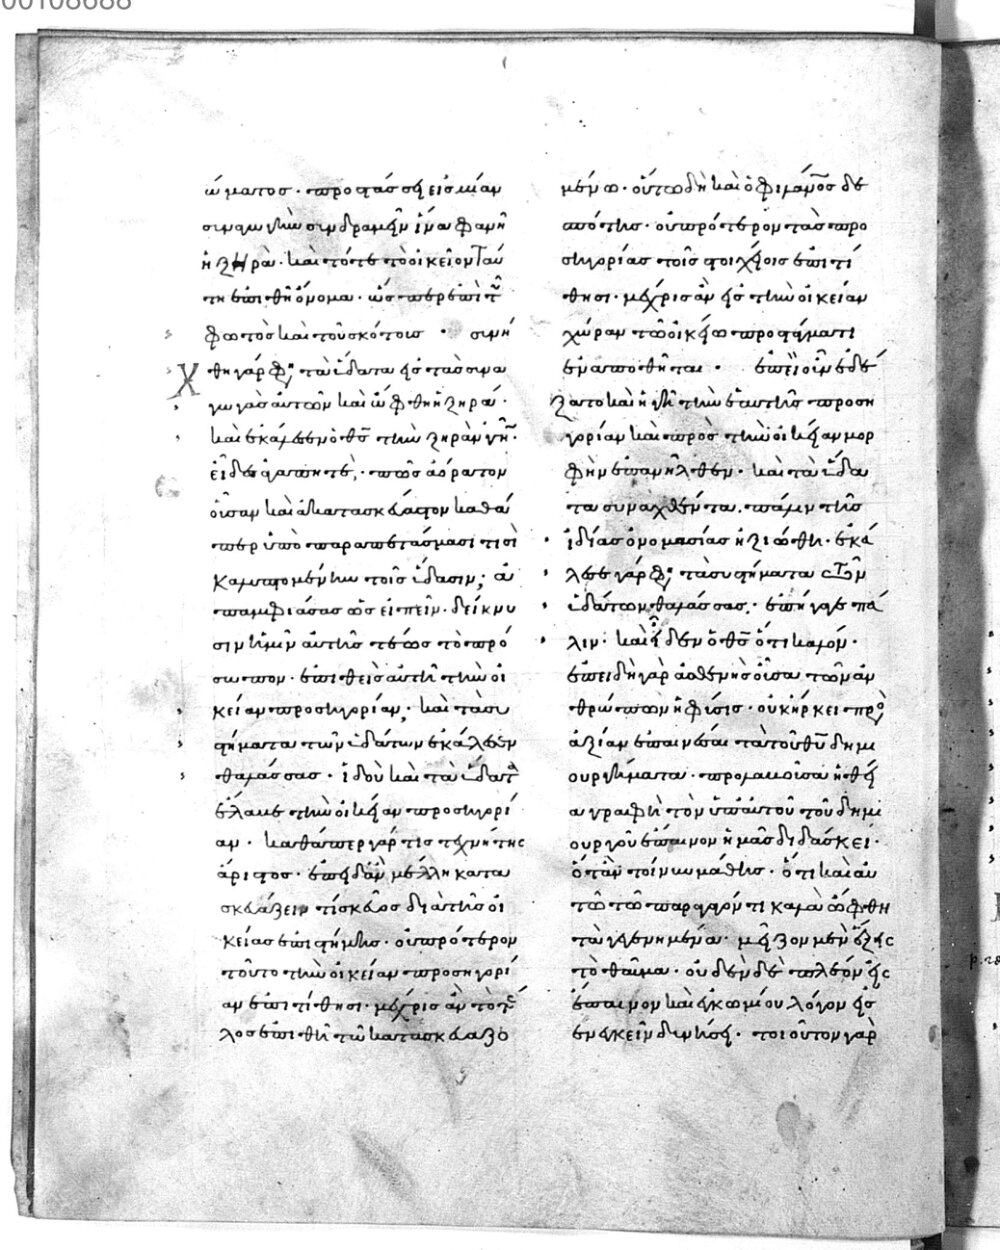 00108688
ώματος · προστάσσει εἰς μίαν
συναγωγὴν συνδραμεῖν ἵνα φανῆ
ἡ ξηρὰ · καὶ τότε τὸ οἰκεῖον ταύ
τη ἐπιθῆ ὄνομα · ὥσπερ ἐπὶ τοῦ
φωτὸς καὶ τοῦ σκότους · συνή
χθη γάρ φησι τὰ ὕδατα εἰς τὰς συνα
γωγὰς αὐτῶν καὶ ὤφθη ἡ ξηρά ·
καὶ ἐκάλεσεν ὁ θς τὴν ξηρὰν γῆν ·
εἶδες ἀγαπητέ, · πῶς ἀόρατον
οὖσαν καὶ ἀκατασκεύαστον καθά
περ ὑπὸ παραπετάσμασί τισι
καλυπτομένην τοῖς ὕδασιν; ἀ
παμφιάσας ὡς εἰπεῖν · δείκνυ
σιν ἡμῖν αὐτῆς τέως τὸ πρό
σωπον · ἐπιθεὶς αὐτῆ τὴν οἰ
κείαν προσηγορίαν; καὶ τὰ συ
στήματα τῶν ὑδάτων ἐκάλεσεν
θαλάσσας · ἰδοὺ καὶ τὰ ὕδατα
ἔλαβε τὴν οἰκείαν προσηγορί
αν · καθάπερ γάρ τις τεχνίτης
ἄριστος · ἐπειδὰν μέλλη κατα
σκευάζειν τί σκεῦος διὰ τῆς οἰ
κείας ἐπιστήμης · οὐ πρότερον
τοῦτο τὴν οἰκείαν προσηγορί
αν ἐπιτίθησι · μέχρις ἂν τὸ τέ
λος ἐπιθῆ τῶ κατασκευαζο
μένω · οὕτω δὴ καὶ ὁ φιλανος δε
σπότης · οὐ πρότερον τὰς προ
σηγορίας τοῖς στοιχείοις ἐπιτί
θησι · μέχρις ἂν εἰς τὴν οἰκείαν
χώραν τῶ οἰκείω προστάγματι
ἐναποθῆται · ἐπεὶ οὖν ἐδέ
ξατο καὶ ἡ γῆ τὴν ἑαυτῆς προση
γορίαν καὶ πρὸς τὴν οἰκείαν μορ
φὴν ἐπανῆλθεν · καὶ τὰ ὕδα
τα συναχθέντα · πάλιν τῆς
ἰδίας ὀνομασίας ἠξιώθη · ἐκά
λεσε γάρ φησι τὰ συστήματα τῶν
ὑδάτων θαλάσσας · ἐπήγαγε πά
λιν · καὶ εἶδεν ὁ θς ὅτι καλόν ·
ἐπειδὴ γὰρ ἀσθενὴς οὖσα τῶν ἀν
θρώπων ἡ φύσις · οὐκ ἤρκει πρὸς
ἀξίαν ἐπαινέσαι τὰ τοῦ θυ δημι
ουργήματα · προλαβοῦσα ἡ θεί
α γραφὴ τὸν ὑπ' αὐτοῦ τοῦ δημι
ουργοῦ ἔπαινον ἡμᾶς διδάσκει ·
ὅταν τοίνυν μάθης · ὅτι καὶ αὐ
τῶ τῶ παραγαγόντι καλὰ ὤφθη
τὰ γεγενημένα · μεῖζον μὲν ἕξεις
τὸ θαῦμα · οὐδὲν δὲ πλέον εἰς
ἔπαινον καὶ ἐγκωμίου λόγον εἰσ
ενεγκεῖν δυνήση · τοιοῦτον γὰρ